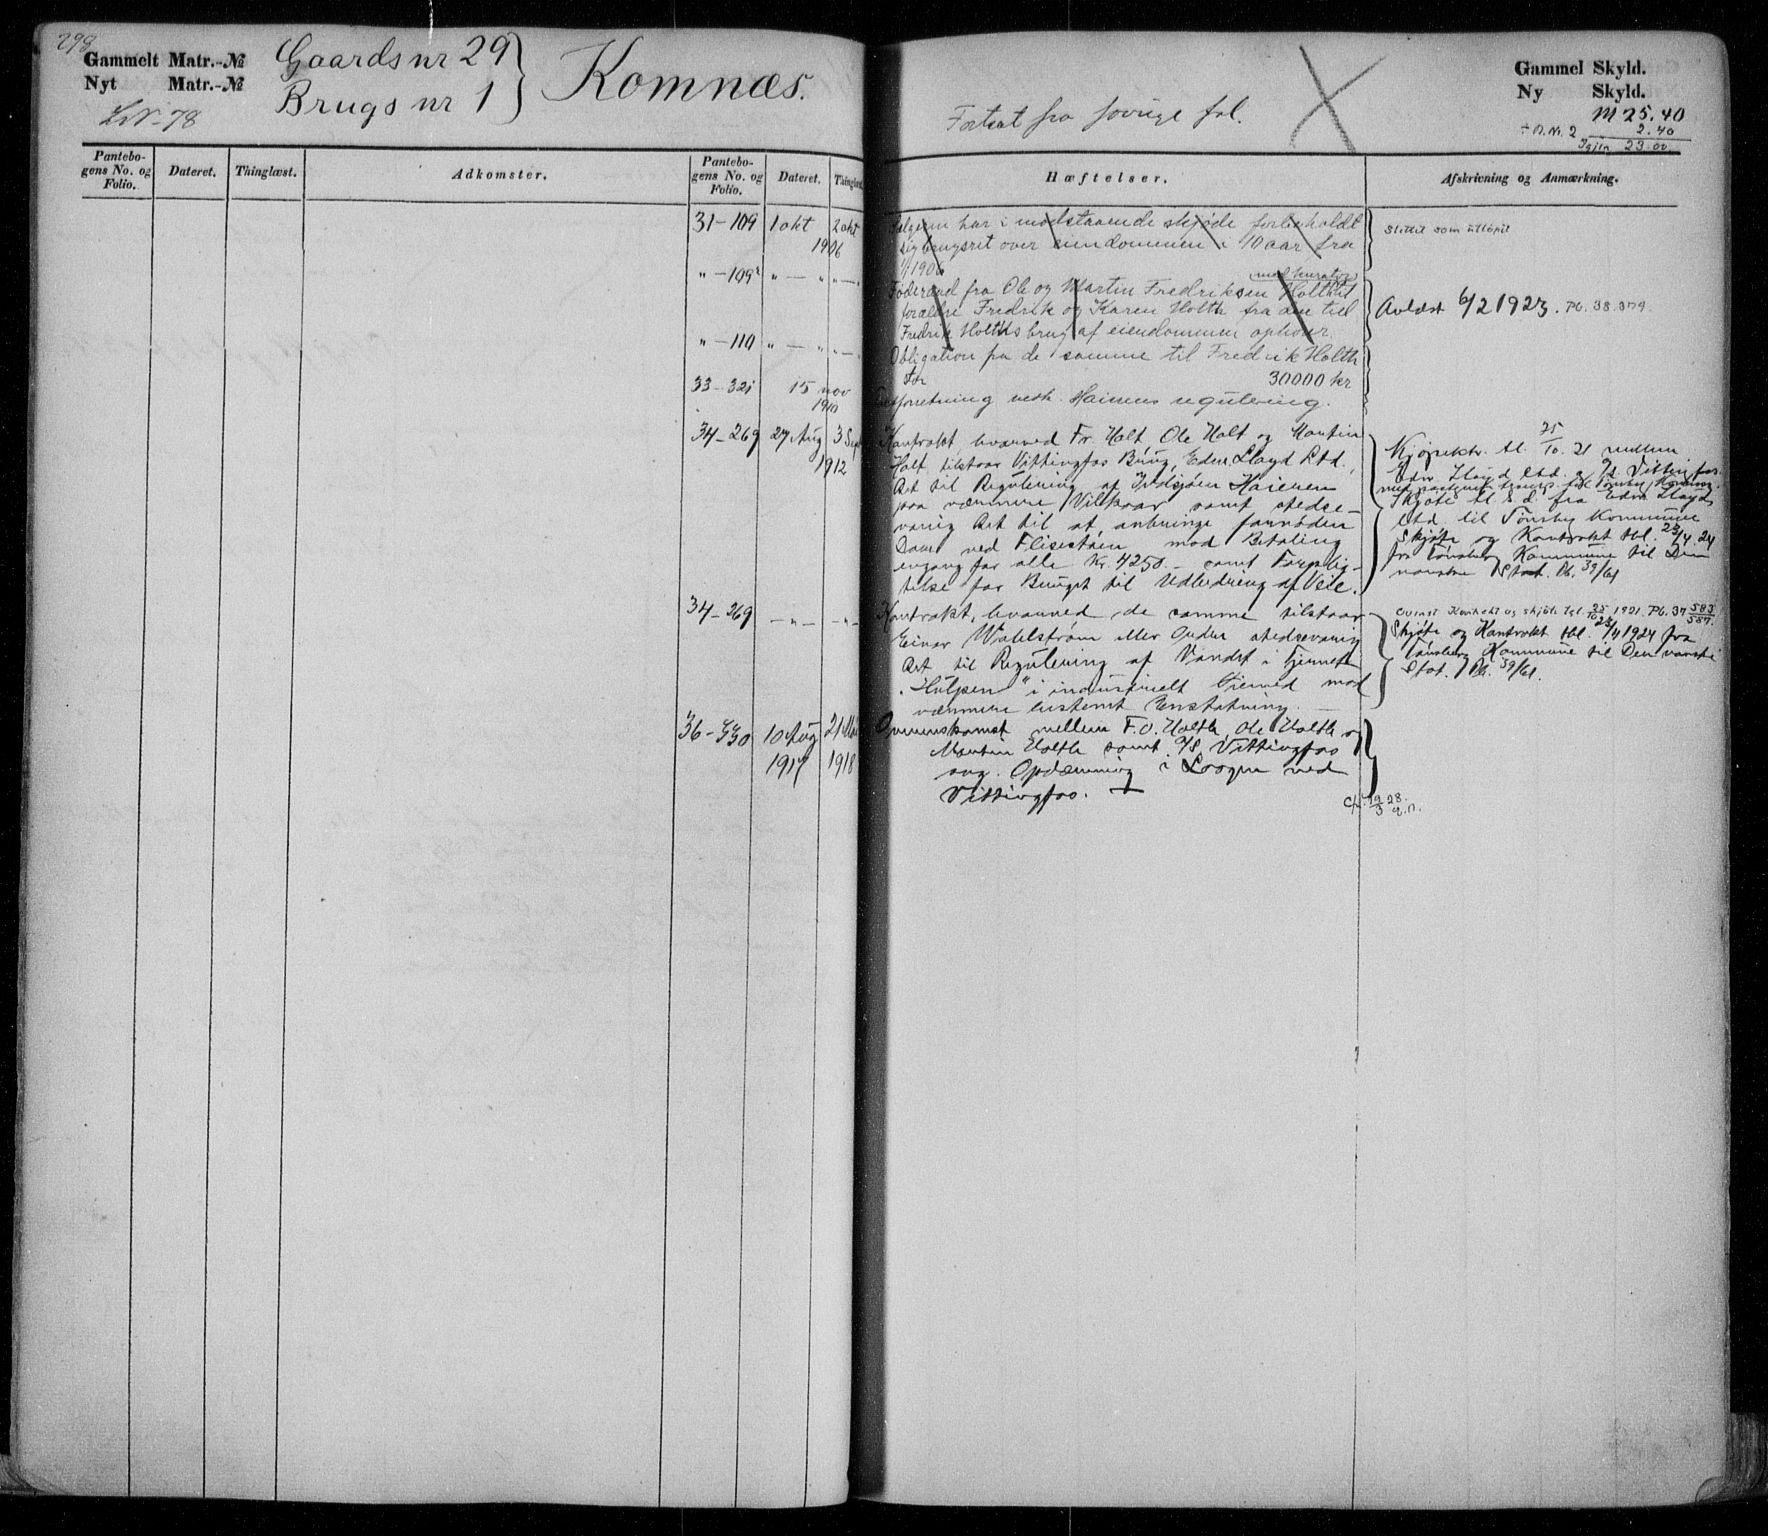 298
Gammelt Matr.-№ Gaards nr 29
Nyt Matr.-№ Brugs nr 1
Komnæs.
LN-78
Fortsat fra forrige fol.
Gammel Skyld.
Ny Skyld.
M 25.40
÷ B.N. 2 2.40
Igjen 23.00
Pantebo-
gens No. og
Folio.
Dateret.
Thinglæst.
Adkomster.
Pantebo-
gens No. og
Folio.
Dateret.
Thinglæst
Hæftelser.
Afskrivning og Anmærkning.
31-109 1 okt 2 okt
1906
Sælgeren har i modstaaende skjøde forbeholdt
sig brugsret over eiendommen i 10 aar fra
1/1 1906
Slettet som utløpet
"-109² "-" "-"
Føderaad fra Ole og Martin Fredriksen Holth til
forældre Fredrik og Karen Holth fra den tid
Fredrik Holths brug af eiendommen ophører.
Avløst 6/2 1923. Pb. 38.379.
"-110 "-" "-"
Obligation fra de samme til Fredrik Holth
for 30000 kr
33-321 15 nov
1910
forretning vedk. Haiernes regulering.
34-269 27 Aug 3 Sept
1912
Kontrakt, hvorved Fr. Holt, Ole Holt og Martin
Holt tilstaar Vittingfos Brug, Edw. Lloyd Ltd.,
Ret til Regulering af Haieren
paa nærmere Vilkaar samt stedse-
varig Ret til at anbringe fornøden
Dam ved mod Betaling
engang for alle Kr. 4250.- samt Forplig-
telse for Bruget til Udbedring af Veie.
Kjøpektr. tl. 25/10. 21 mellem
Edw Lloyd Ltd. og A/S Vittingfos.
Skjøte tl. s. d. fra Edw Lloyds
Ltd. til Tønsberg Kommune
Skjøte og Kontrakt tbl. 23/4 24
fra Tønsberg Kommune til Den
norske Stat. Pb. 39/61
34-269 -"- -"-
Kontrakt, hvorved de samme tilstaar
Einar Wahlstrøm eller Order stedsevarig
Ret til Regulering af Vandet i Tjernet
"Hulpen" i industrielt Øiemed mod
nærmere bestemt Erstatning.
Kontrakt og skjøte tgl. 25/10 1921. Pb. 37 583/587.
Skjøte og Kontrakt tbl. 23/4 1924 fra
Tønsberg Kommune til Den norske
Stat. Pb. 39/61.
36-550 10 Aug
1917
1918
Overenskomst mellem F. O. Holth, Ole Holth og
Martin Holth samt A/S Vittingfos
ang. Opdæmning i Laagen ved
Vittingfos.
19/3 28.